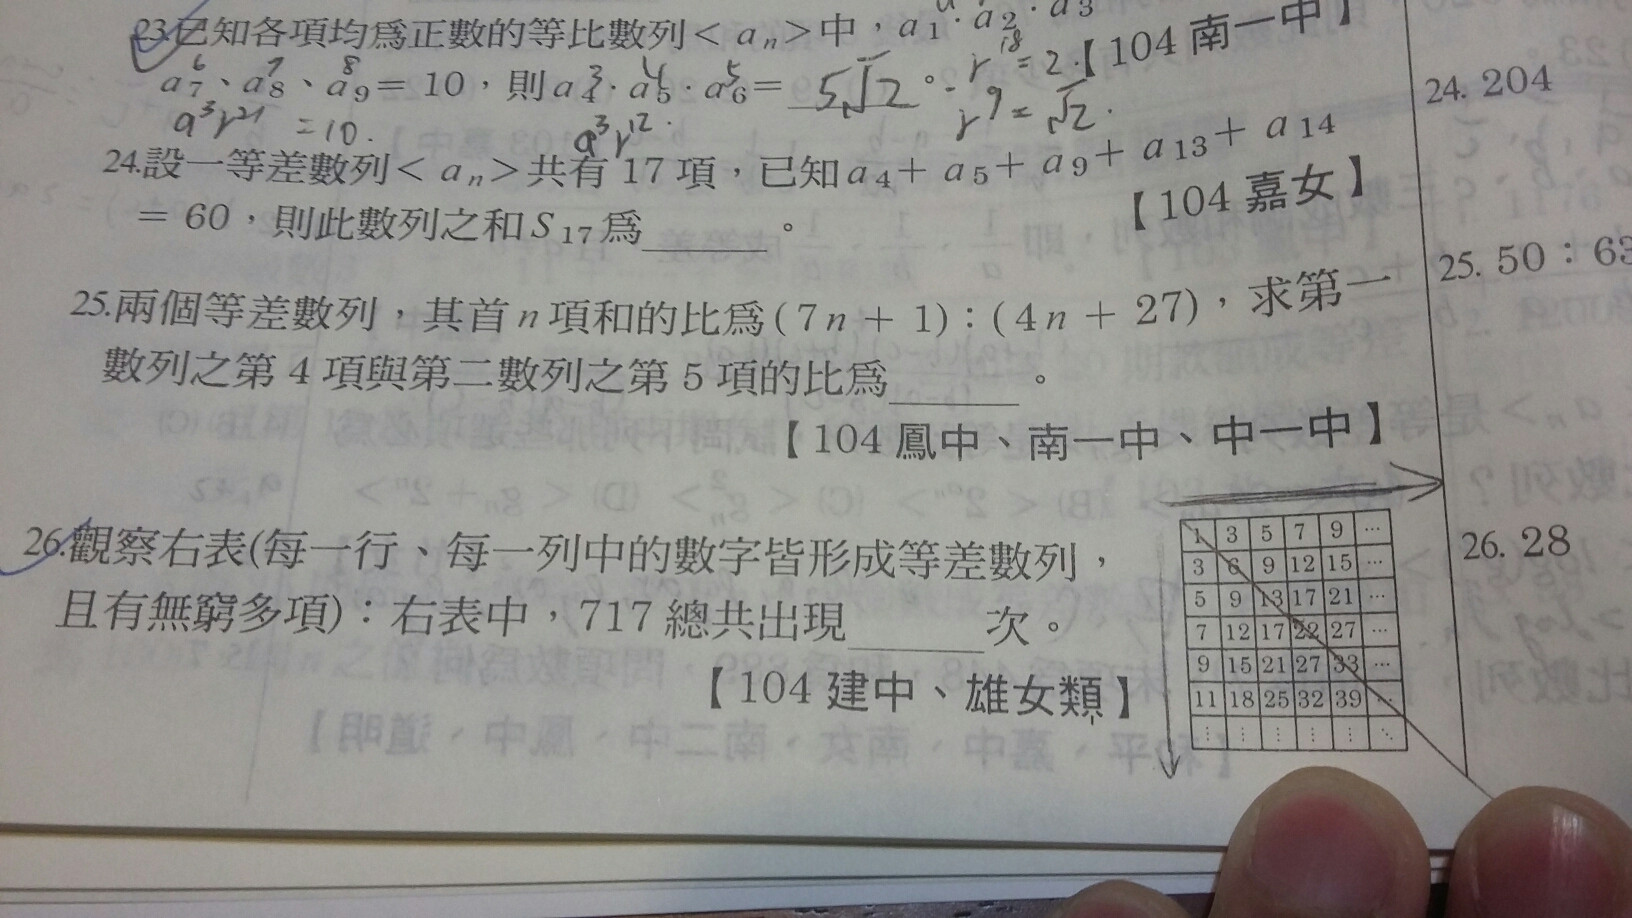 23.已知各項均為正數的等比數列<an>中，a1·a2·a3
【104 南一中】
6 7 8
a7、a8、a9=10，則a4·a5·a6= 5√2 。
3 4 5
r^18=2.
r^9=√2.
a^3r^21 =10.
a^3r^12.
24.設一等差數列<an>共有 17 項，已知a4+a5+a9+a13+a14
=60，則此數列之和S17為______。
【104 嘉女】
25.兩個等差數列，其首n項和的比為(7n+1)：(4n+27)，求第一
數列之第 4 項與第二數列之第 5 項的比為______。
【104 鳳中、南一中、中一中】
26.觀察右表(每一行、每一列中的數字皆形成等差數列，
且有無窮多項)：右表中，717 總共出現______次。
【104 建中、雄女類】
1 3 5 7 9 …
3 6 9 12 15 …
5 9 13 17 21 …
7 12 17 22 27 …
9 15 21 27 33 …
11 18 25 32 39 …
⋮ ⋮ ⋮ ⋮ ⋮ ⋱
24. 204
25. 50：63
26. 28